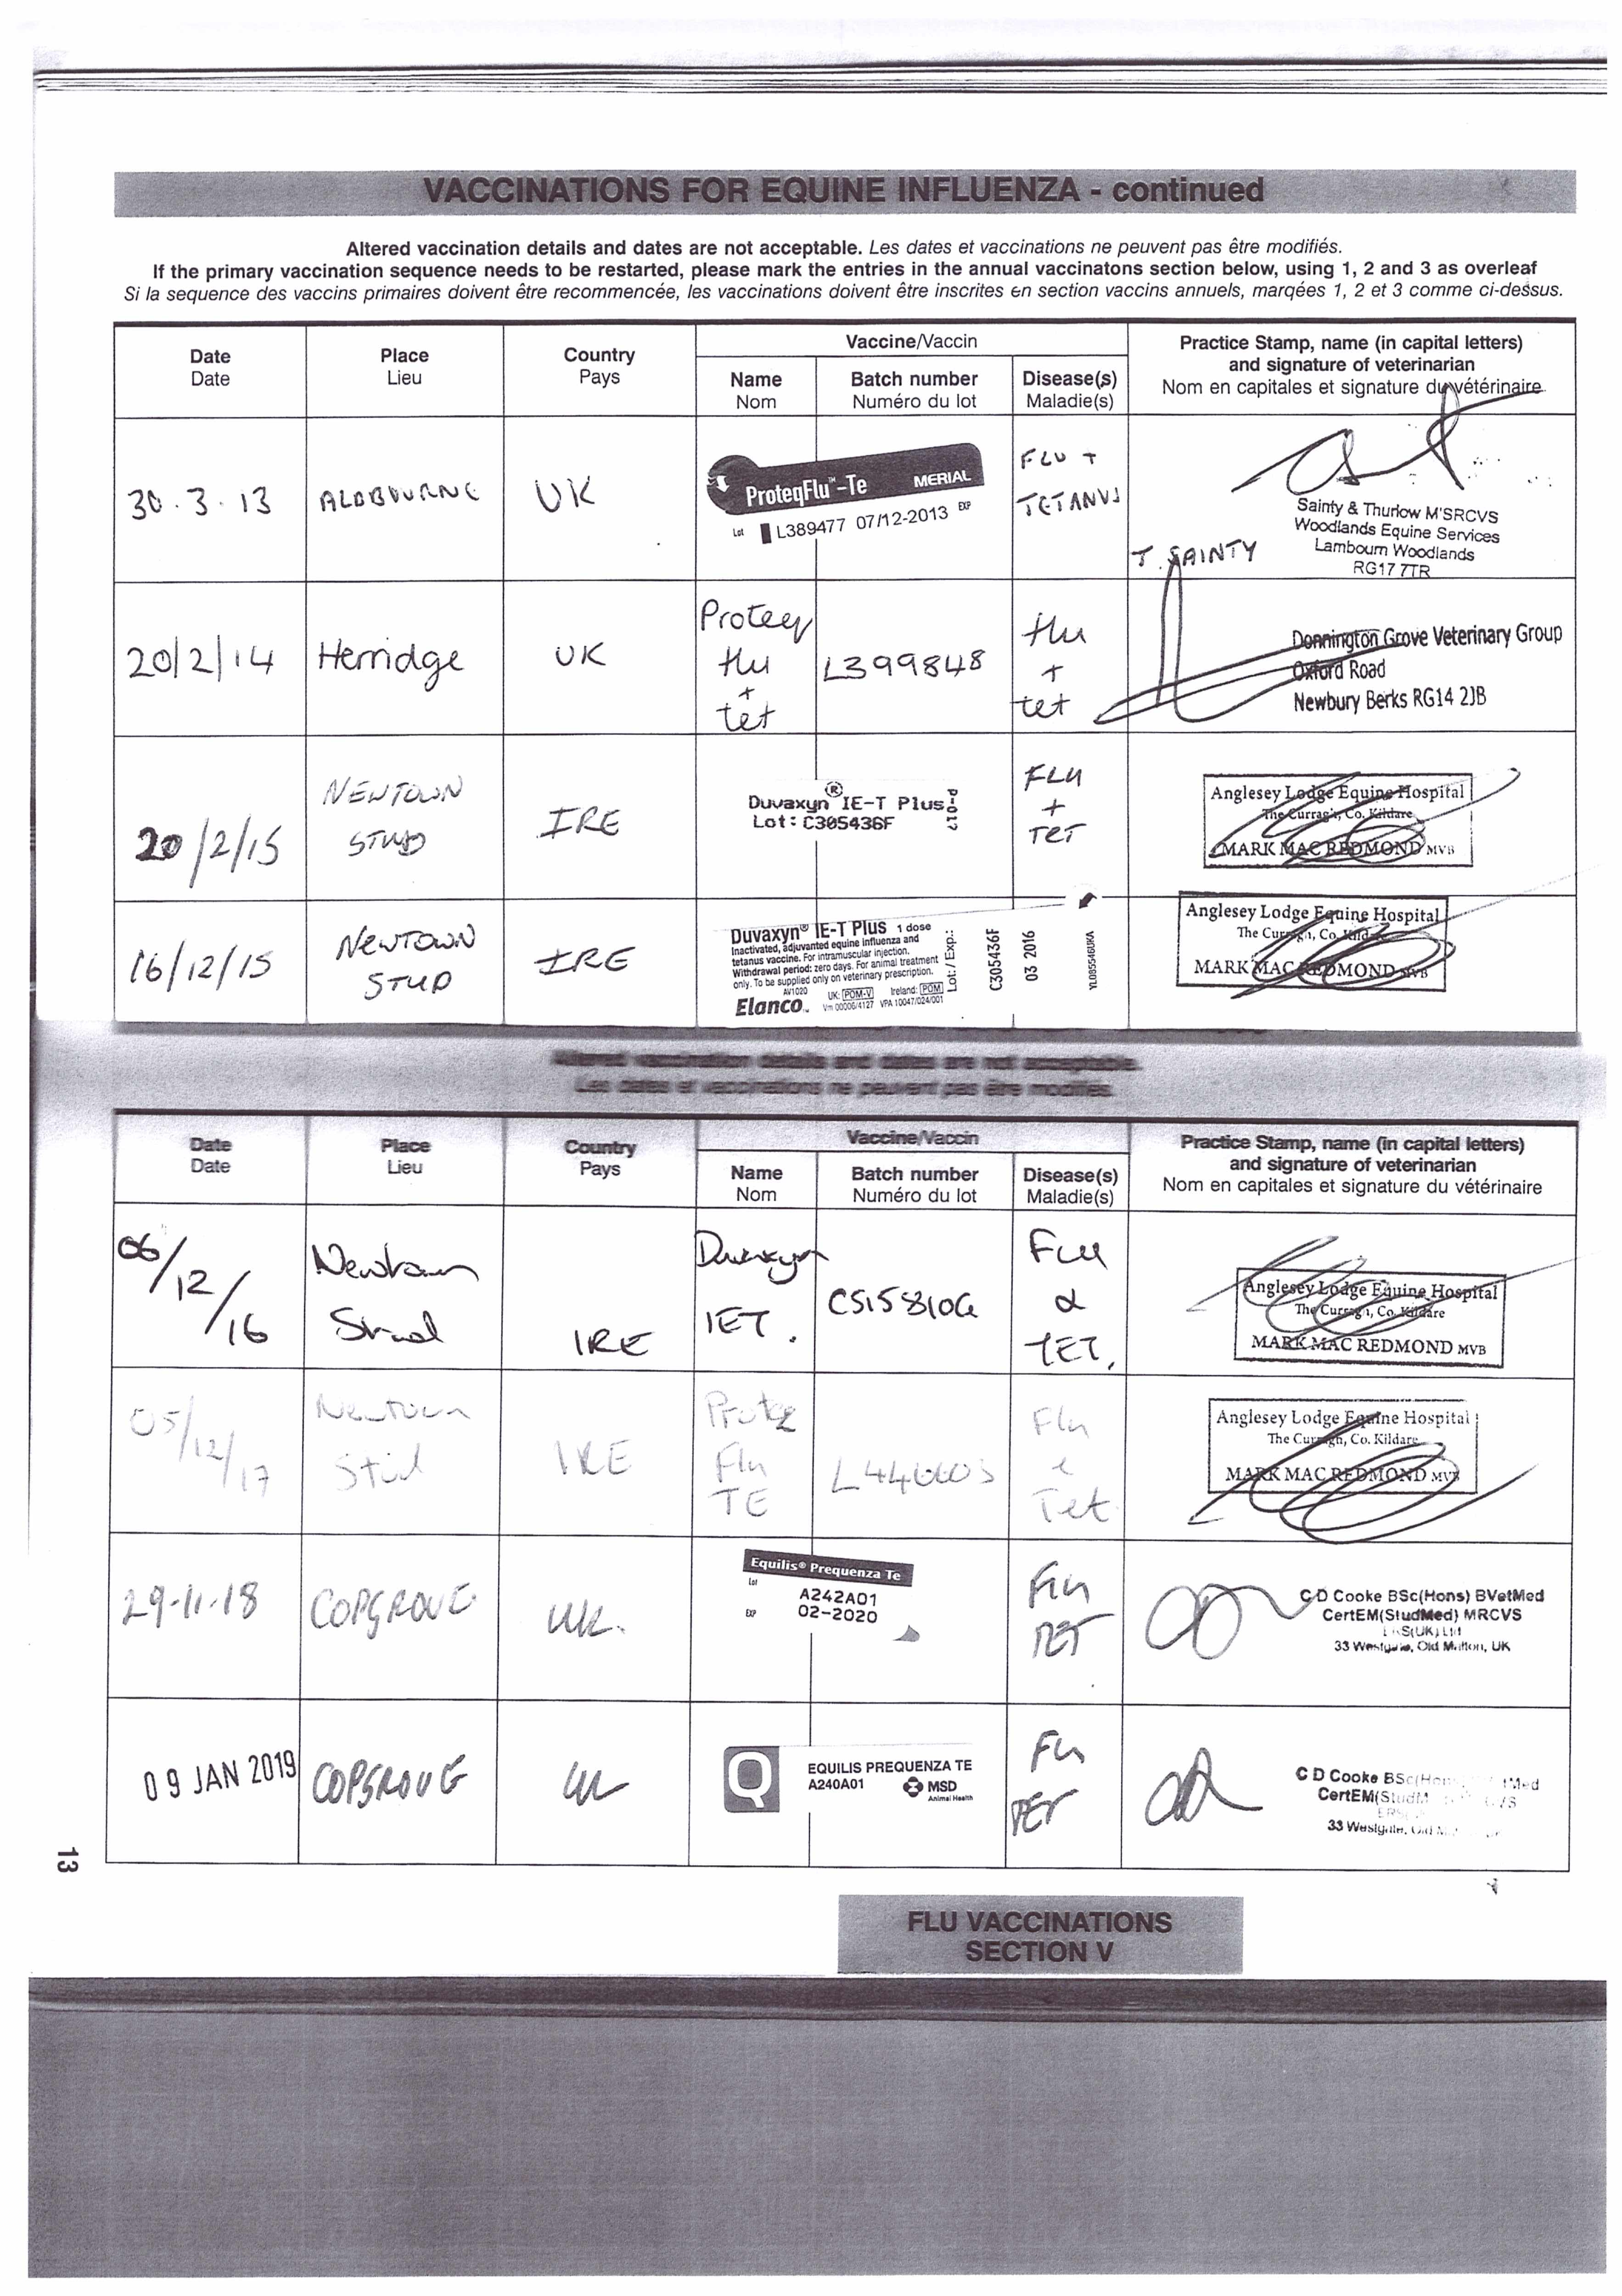 VACCINATIONS FOR EQUINE INFLUENZA - continued
Altered vaccination details and dates are not acceptable. Les dates et vaccinations ne peuvent pas être modifiés.
If the primary vaccination sequence needs to be restarted, please mark the entries in the annual vaccinatons section below, using 1, 2 and 3 as overleaf
Si la sequence des vaccins primaires doivent être recommencée, les vaccinations doivent être inscrites en section vaccins annuels, marqées 1, 2 et 3 comme ci-dessus.
Date
Date
Place
Lieu
Country
Pays
Vaccine/Vaccin
Name
Nom
Batch number
Numéro du lot
Disease(s)
Maladie(s)
Practice Stamp, name (in capital letters)
and signature of veterinarian
Nom en capitales et signature du vétérinaire
30.3.13
ALDBOURNE
UK
ProteqFlu™-Te MERIAL
Lot L389477 07/12-2013 EXP
FLU +
TETANUS
Sainty & Thurlow M'SRCVS
Woodlands Equine Services
Lambourn Woodlands
RG17 7TR
T. SAINTY
20/2/14
Herridge
UK
Proteq
flu
+
tet
L399848
flu
+
tet
Donnington Grove Veterinary Group
Oxford Road
Newbury Berks RG14 2JB
20/2/15
NEWTOWN
STUD
IRE
Duvaxyn® IE-T Plus
Lot: C305436F
P-017
FLU
+
TET
Anglesey Lodge Equine Hospital
The Curragh, Co. Kildare
MARK MAC REDMOND MVB
16/12/15
NEWTOWN
STUD
IRE
Duvaxyn® IE-T Plus 1 dose
Inactivated, adjuvanted equine influenza and
tetanus vaccine. For intramuscular injection.
Withdrawal period: zero days. For animal treatment
only. To be supplied only on veterinary prescription.
AV1020 UK: POM-V Ireland: POM
Elanco™ Vm 00006/4127 VPA 10047/024/001
Lot:/Exp.:
C305436F
03 2016
YL085546UKA
Anglesey Lodge Equine Hospital
The Curragh, Co. Kildare
MARK MAC REDMOND MVB
Altered vaccination details and dates are not acceptable.
Les dates et vaccinations ne peuvent pas être modifiés.
Date
Date
Place
Lieu
Country
Pays
Vaccine/Vaccin
Name
Nom
Batch number
Numéro du lot
Disease(s)
Maladie(s)
Practice Stamp, name (in capital letters)
and signature of veterinarian
Nom en capitales et signature du vétérinaire
06/12/16
Newtown
Stud
IRE
Duvaxyn
IET.
C515810G
Flu
&
TET.
Anglesey Lodge Equine Hospital
The Curragh, Co. Kildare
MARK MAC REDMOND MVB
05/12/17
Newtown
Stud
IRE
Flu
TE
Flu
Tet
Anglesey Lodge Equine Hospital
The Curragh, Co. Kildare
MARK MAC REDMOND MVB
29-11-18
COPGROVE
UK.
Equilis® Prequenza Te
Lot A242A01
EXP 02-2020
Flu
TET
C D Cooke BSc(Hons) BVetMed
CertEM(StudMed) MRCVS
33 Westgate, Old Malton, UK
09 JAN 2019
COPGROVE
UK
Q
EQUILIS PREQUENZA TE
A240A01
MSD
Animal Health
Flu
TET
C D Cooke BSc(Hons
CertEM(StudM
33 Westgate, Old
13
FLU VACCINATIONS
SECTION V